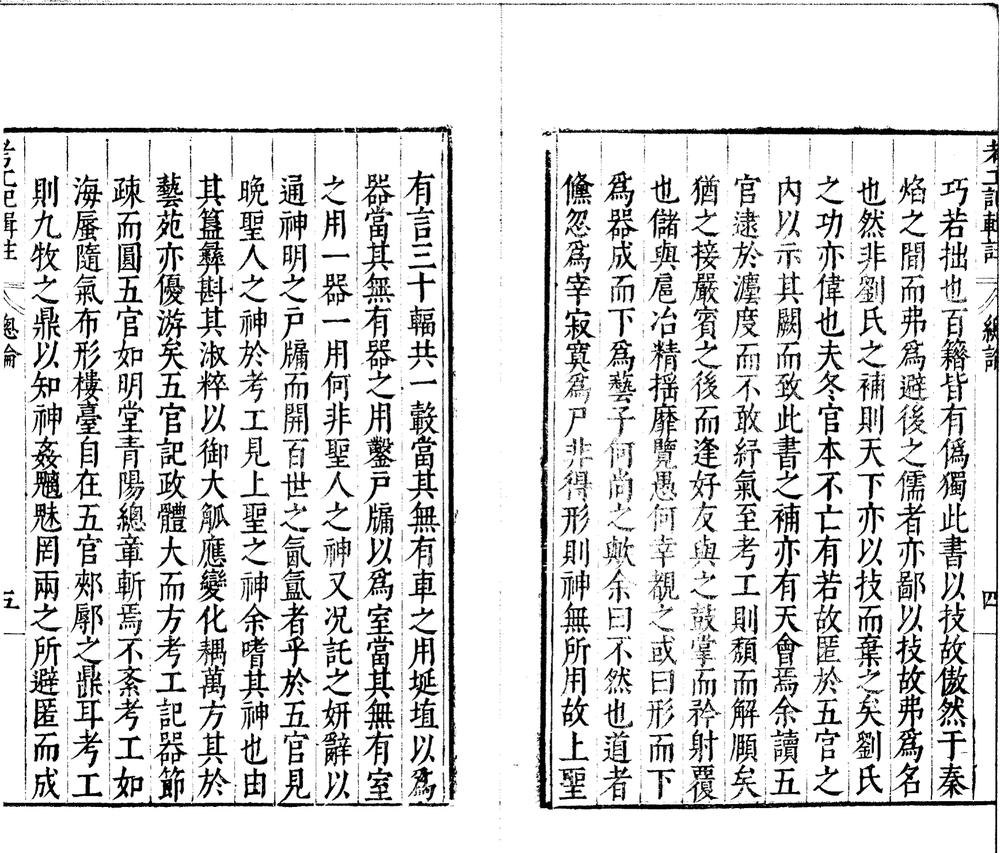 巧若拙也百籍皆有偽獨此書以技故傲然于秦
焰之間而弗為避後之儒者亦鄙以技故弗為名
也然非劉氏之補則天下亦以技而棄之矣劉氏
之功亦偉也夫冬官本不亡有若故匿於五官之
內以示其闕而致此書之補亦有天會焉余讀五
官逮於瀍度而不敢紓氣至考工則頽而解頤矣
猶之接嚴賓之後而逢好友與之鼓掌而矜射覆
也儲與扈冶精揺靡覽愚何幸覩之或曰形而下
為器成而下為藝子何尚之歟余曰不然也道者
儵忽為宰寂寞為尸非得形則神無所用故上聖
四
有言三十輻共一轂當其無有車之用埏埴以為
器當其無有器之用鑿戶牖以為室當其無有室
之用一器一用何非聖人之神又況託之妍辭以
通神明之戶牖而開百世之氤氳者乎於五官見
晚聖人之神於考工見上聖之神余嗜其神也由
其簋彝斟其淑粹以御大觚應變化耦萬方其於
藝苑亦優游矣五官記政體大而方考工記器節
疎而圓五官如明堂青陽總章斬焉不紊考工如
海蜃隨氣布形樓臺自在五官郟鄏之鼎耳考工
則九牧之鼎以知神姦魑魅罔兩之所避匿而成
五